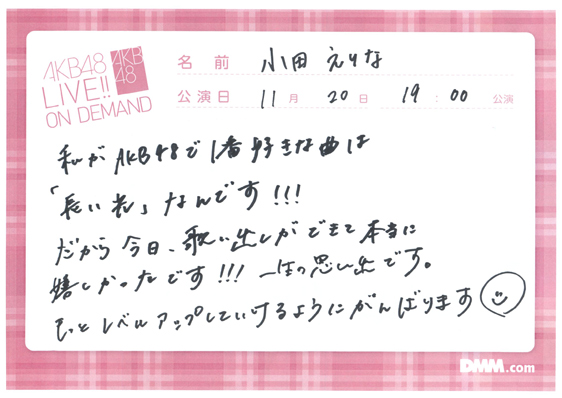 AKB48
LIVE!!
ON DEMAND
AKB
48
名前 小田 えりな
公演日 11月 20日 19:00 公演
私がAKB48で1番好きな曲は
「長い光」なんです!!!
だから今日、歌い出しができて本当に
嬉しかったです!!! 一生の思い出です。
もっとレベルアップしていけるようにがんばります
DMM.com